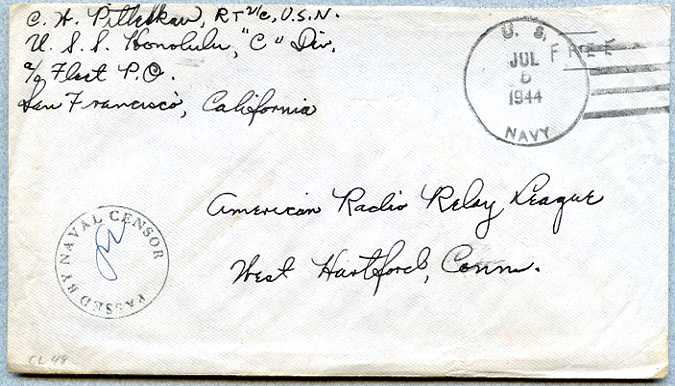 C. H. Pittelkau, RT 2/c, U.S.N.
U. S. S. Honolulu, "C" Div.
c/o Fleet P.O.
San Francisco, California
U. S.
JUL
1944
NAVY
FREE
American Radio Relay League
West Hartford, Conn.
PASSED BY NAVAL CENSOR
CL 48